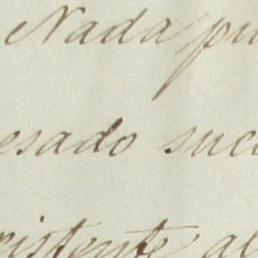 Nada pu
esado suce
xistente al